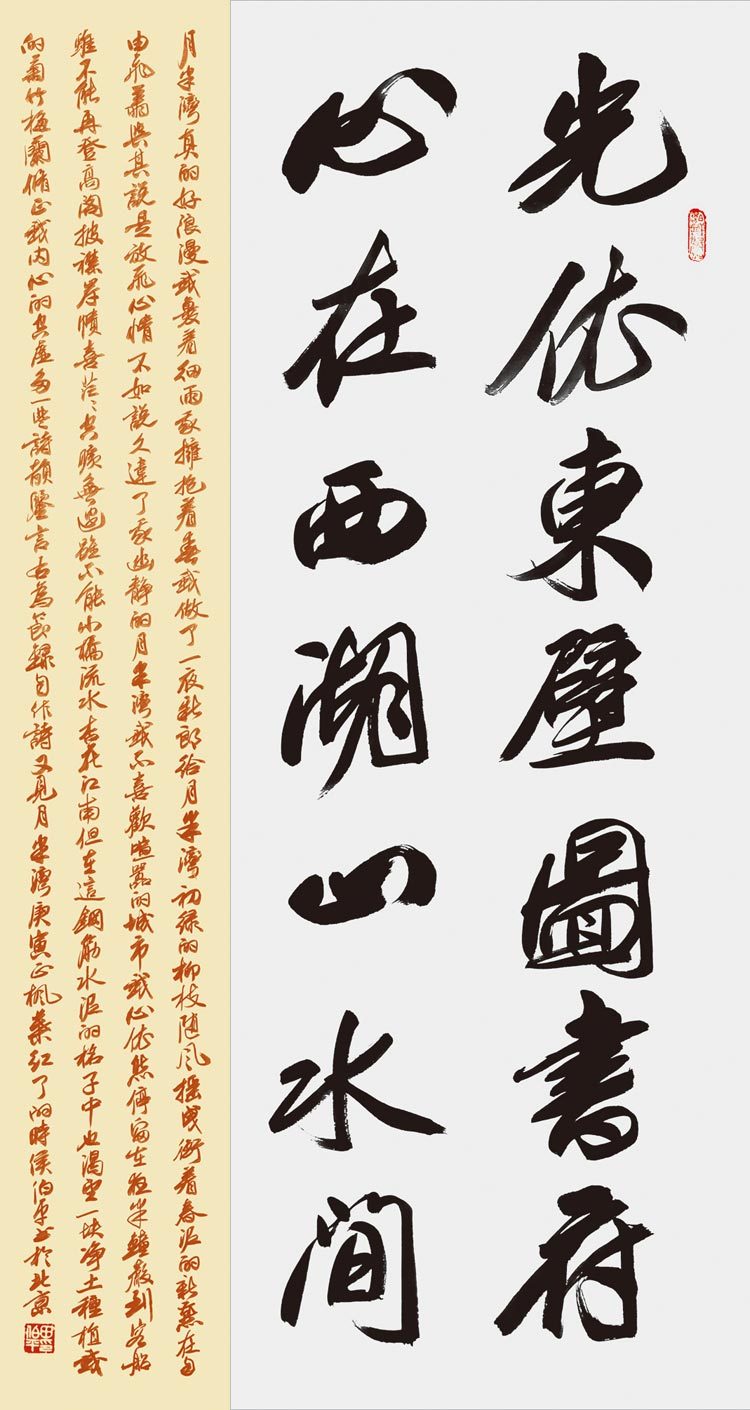 光依東壁圖書府
心在西湖山水間
月半灣真的好浪漫我裹着細雨夜擁抱着春我做了一夜新郎給月半灣初綠的柳枝隨風搖曳銜着春泥的新燕在自
由飛翥與其說是放飛心情不如說久違了夜幽靜的月半灣我不喜歡喧囂的城市我心依然停留在夜半鐘聲到客船
雖不能再登高閣披襟岸幘喜茫茫空闊無邊雖不能小橋流水杏花江南但在這鋼筋水泥的格子中也渴望一塊净土種植我
的菊竹梅蘭修正我内心的空虛多一些詩韻鑒言右為節録自作詩又見月半灣庚寅正楓葉紅了的時候伯平書於北京